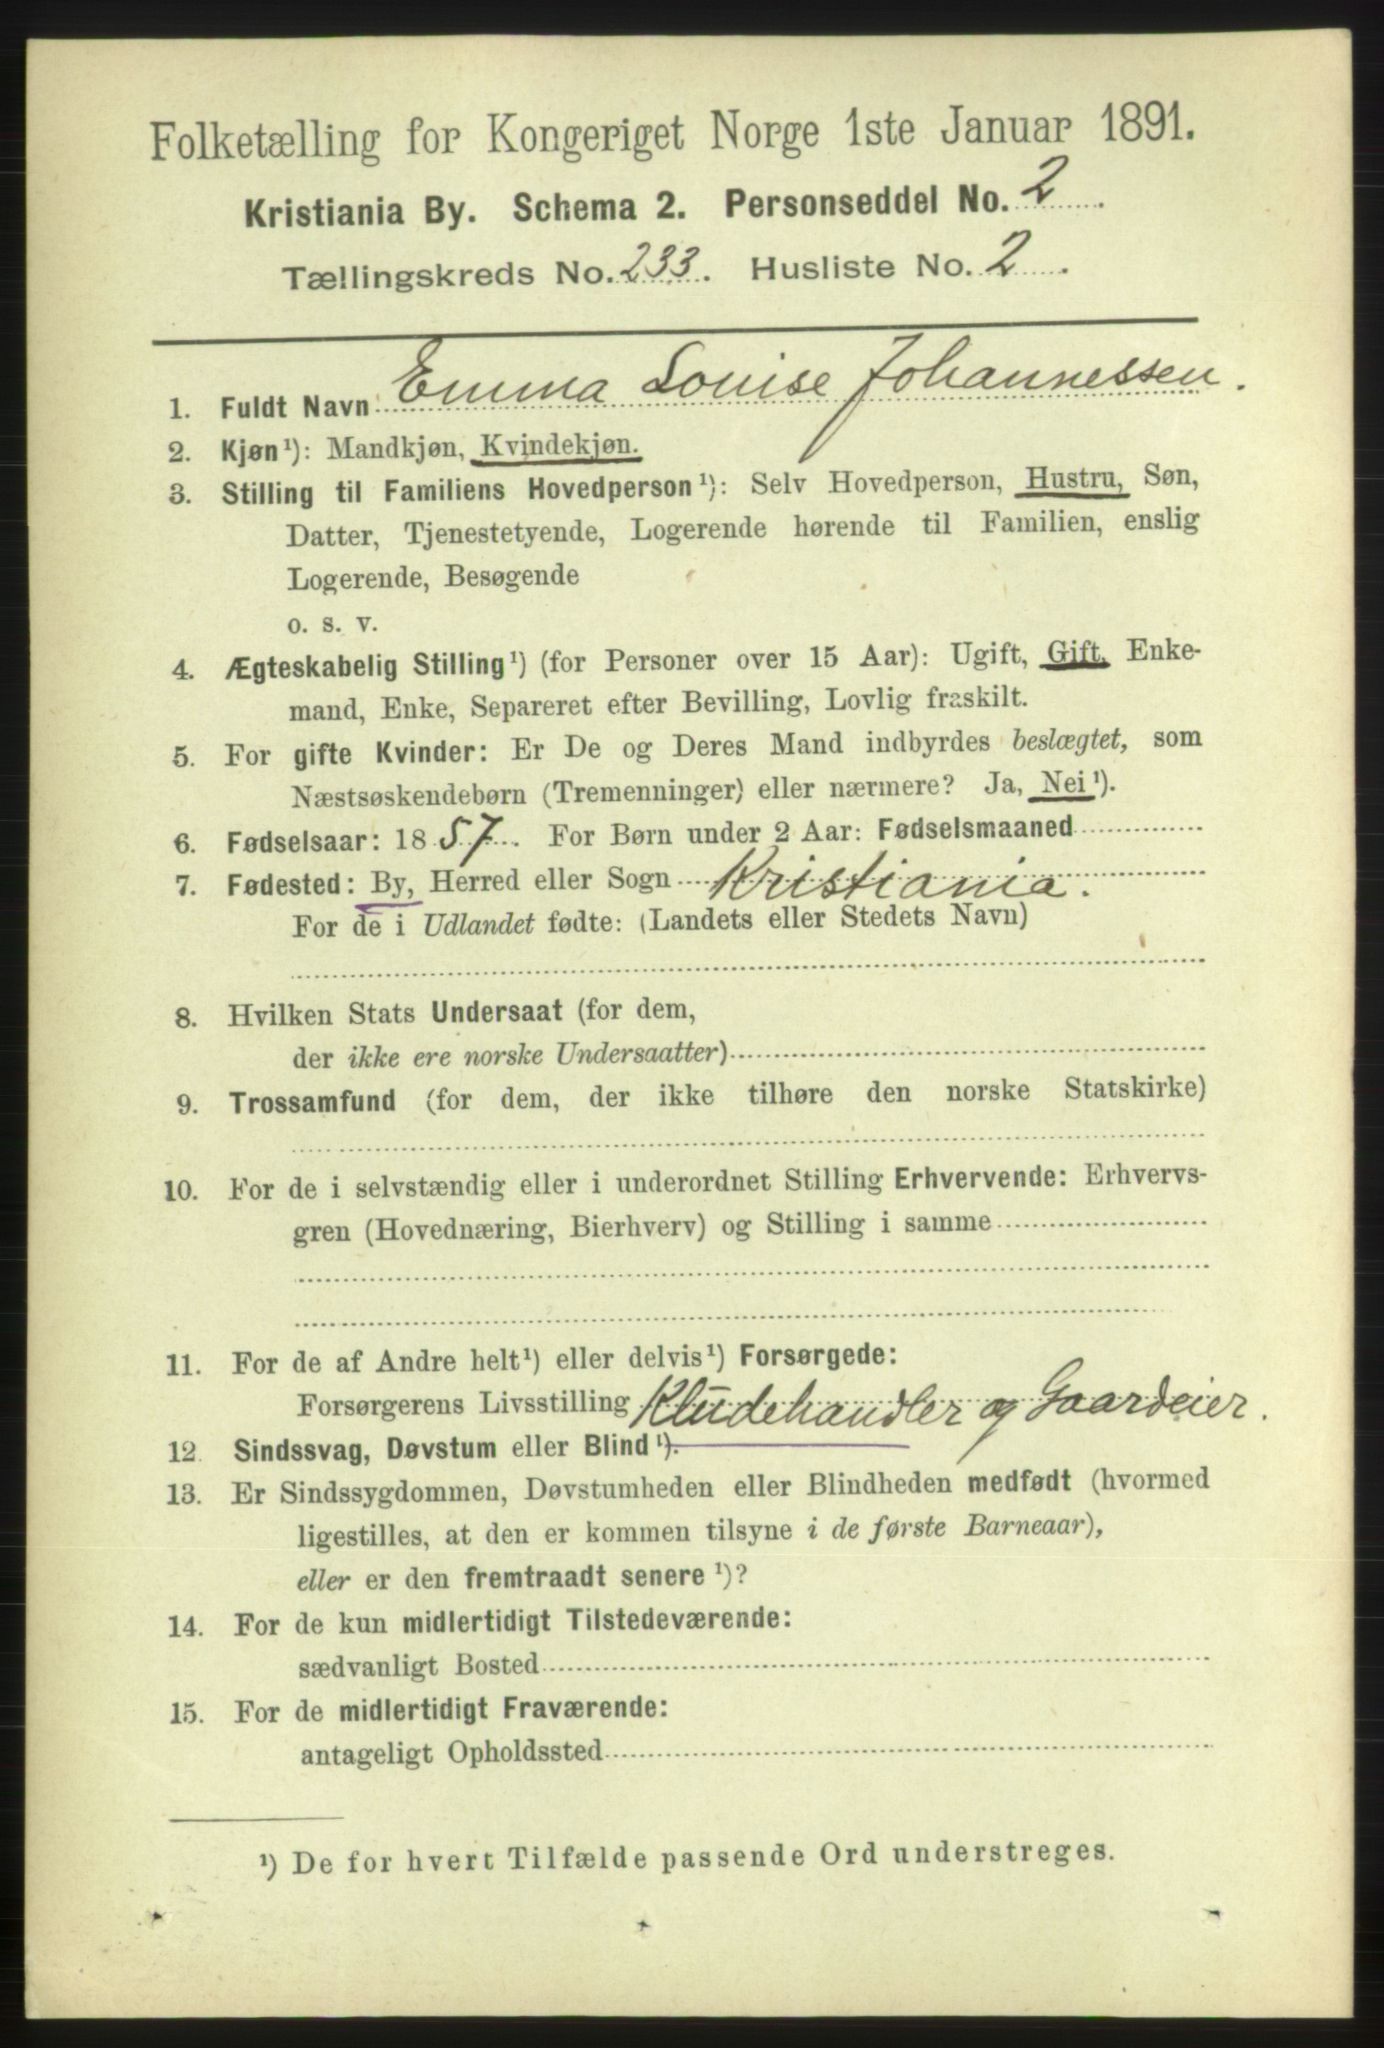 Folketælling for Kongeriget Norge 1ste Januar 1891.
Kristiania By. Schema 2. Personseddel No. 2
Tællingskreds No. 233. Husliste No. 2
1. Fuldt Navn Emma Louise Johannessen.
2. Kjøn¹): Mandkjøn, Kvindekjøn.
3. Stilling til Familiens Hovedperson¹): Selv Hovedperson, Hustru, Søn,
Datter, Tjenestetyende, Logerende hørende til Familien, enslig
Logerende, Besøgende
o. s. v.
4. Ægteskabelig Stilling¹) (for Personer over 15 Aar): Ugift, Gift, Enke-
mand, Enke, Separeret efter Bevilling, Lovlig fraskilt.
5. For gifte Kvinder: Er De og Deres Mand indbyrdes beslægtet, som
Næstsøskendebørn (Tremenninger) eller nærmere? Ja, Nei¹).
6. Fødselsaar: 1857. For Børn under 2 Aar: Fødselsmaaned
7. Fødested: By, Herred eller Sogn Kristiania.
For de i Udlandet fødte: (Landets eller Stedets Navn)
8. Hvilken Stats Undersaat (for dem,
der ikke ere norske Undersaatter)
9. Trossamfund (for dem, der ikke tilhøre den norske Statskirke)
10. For de i selvstændig eller i underordnet Stilling Erhvervende: Erhvervs-
gren (Hovednæring, Bierhverv) og Stilling i samme
11. For de af Andre helt¹) eller delvis¹) Forsørgede:
Forsørgerens Livsstilling Kludehandler og Gaardeier.
12. Sindssvag, Døvstum eller Blind¹).
13. Er Sindssygdommen, Døvstumheden eller Blindheden medfødt (hvormed
ligestilles, at den er kommen tilsyne i de første Barneaar),
eller er den fremtraadt senere¹)?
14. For de kun midlertidigt Tilstedeværende:
sædvanligt Bosted
15. For de midlertidigt Fraværende:
antageligt Opholdssted
¹) De for hvert Tilfælde passende Ord understreges.